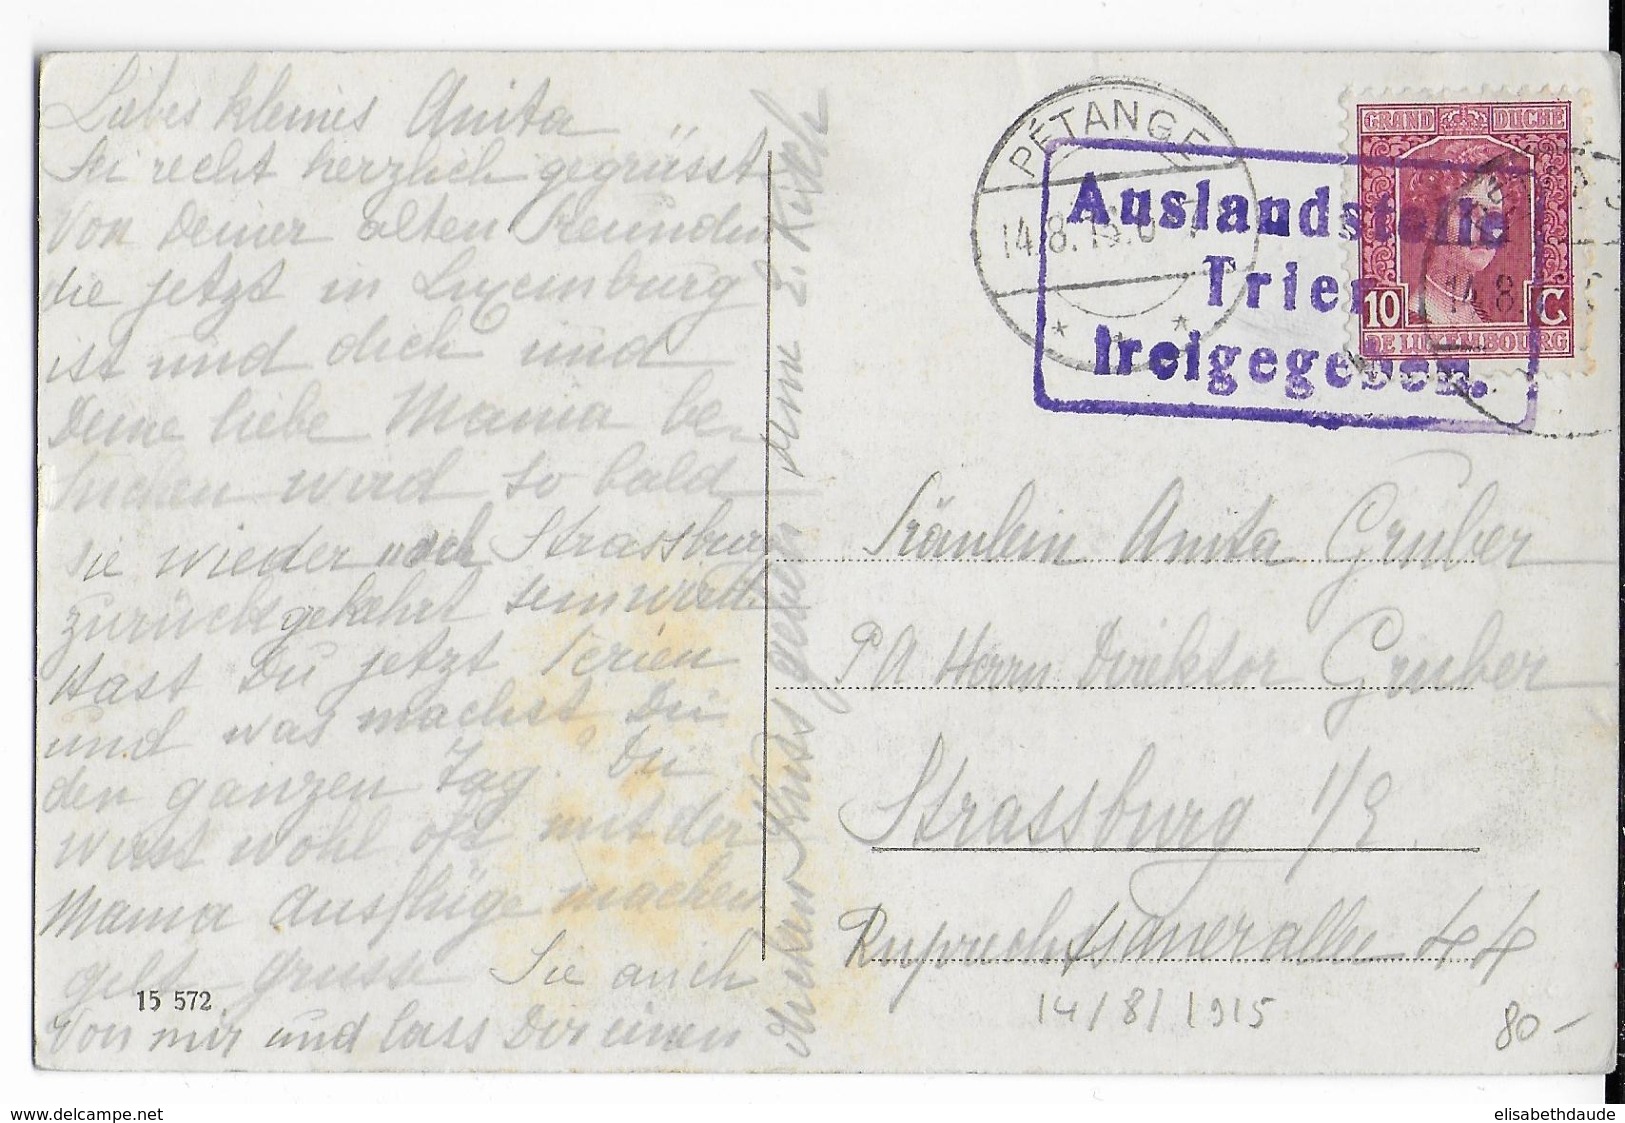 Liebes kleines Anita
Sei recht herzlich gegrüsst
Von Deiner alten Freundin
die jetzt in Luxemburg
ist und dich und
Deine liebe Mama be-
suchen wird so bald
sie wieder nach Strassburg
zurückgekehrt sein wird.
Hast Du jetzt Ferien
und was machst Du
den ganzen Tag? Du
wirst wohl oft mit der
Mama Ausflüge machen
gelt grüsse Sie auch
Von mir und lass Dir einen
Kuss geben
15 572
PÉTANGE
14.8.15
Auslandstelle
Trier
freigegeben.
GRAND DUCHÉ
10 C.
DE LUXEMBOURG
14.8
Fräulein Anita Gruber
P A Herrn Direktor Gruber
Strassburg i/E
Ruprechtsauerallee 44
14/8/1915
80-
www.delcampe.net
elisabethdaude